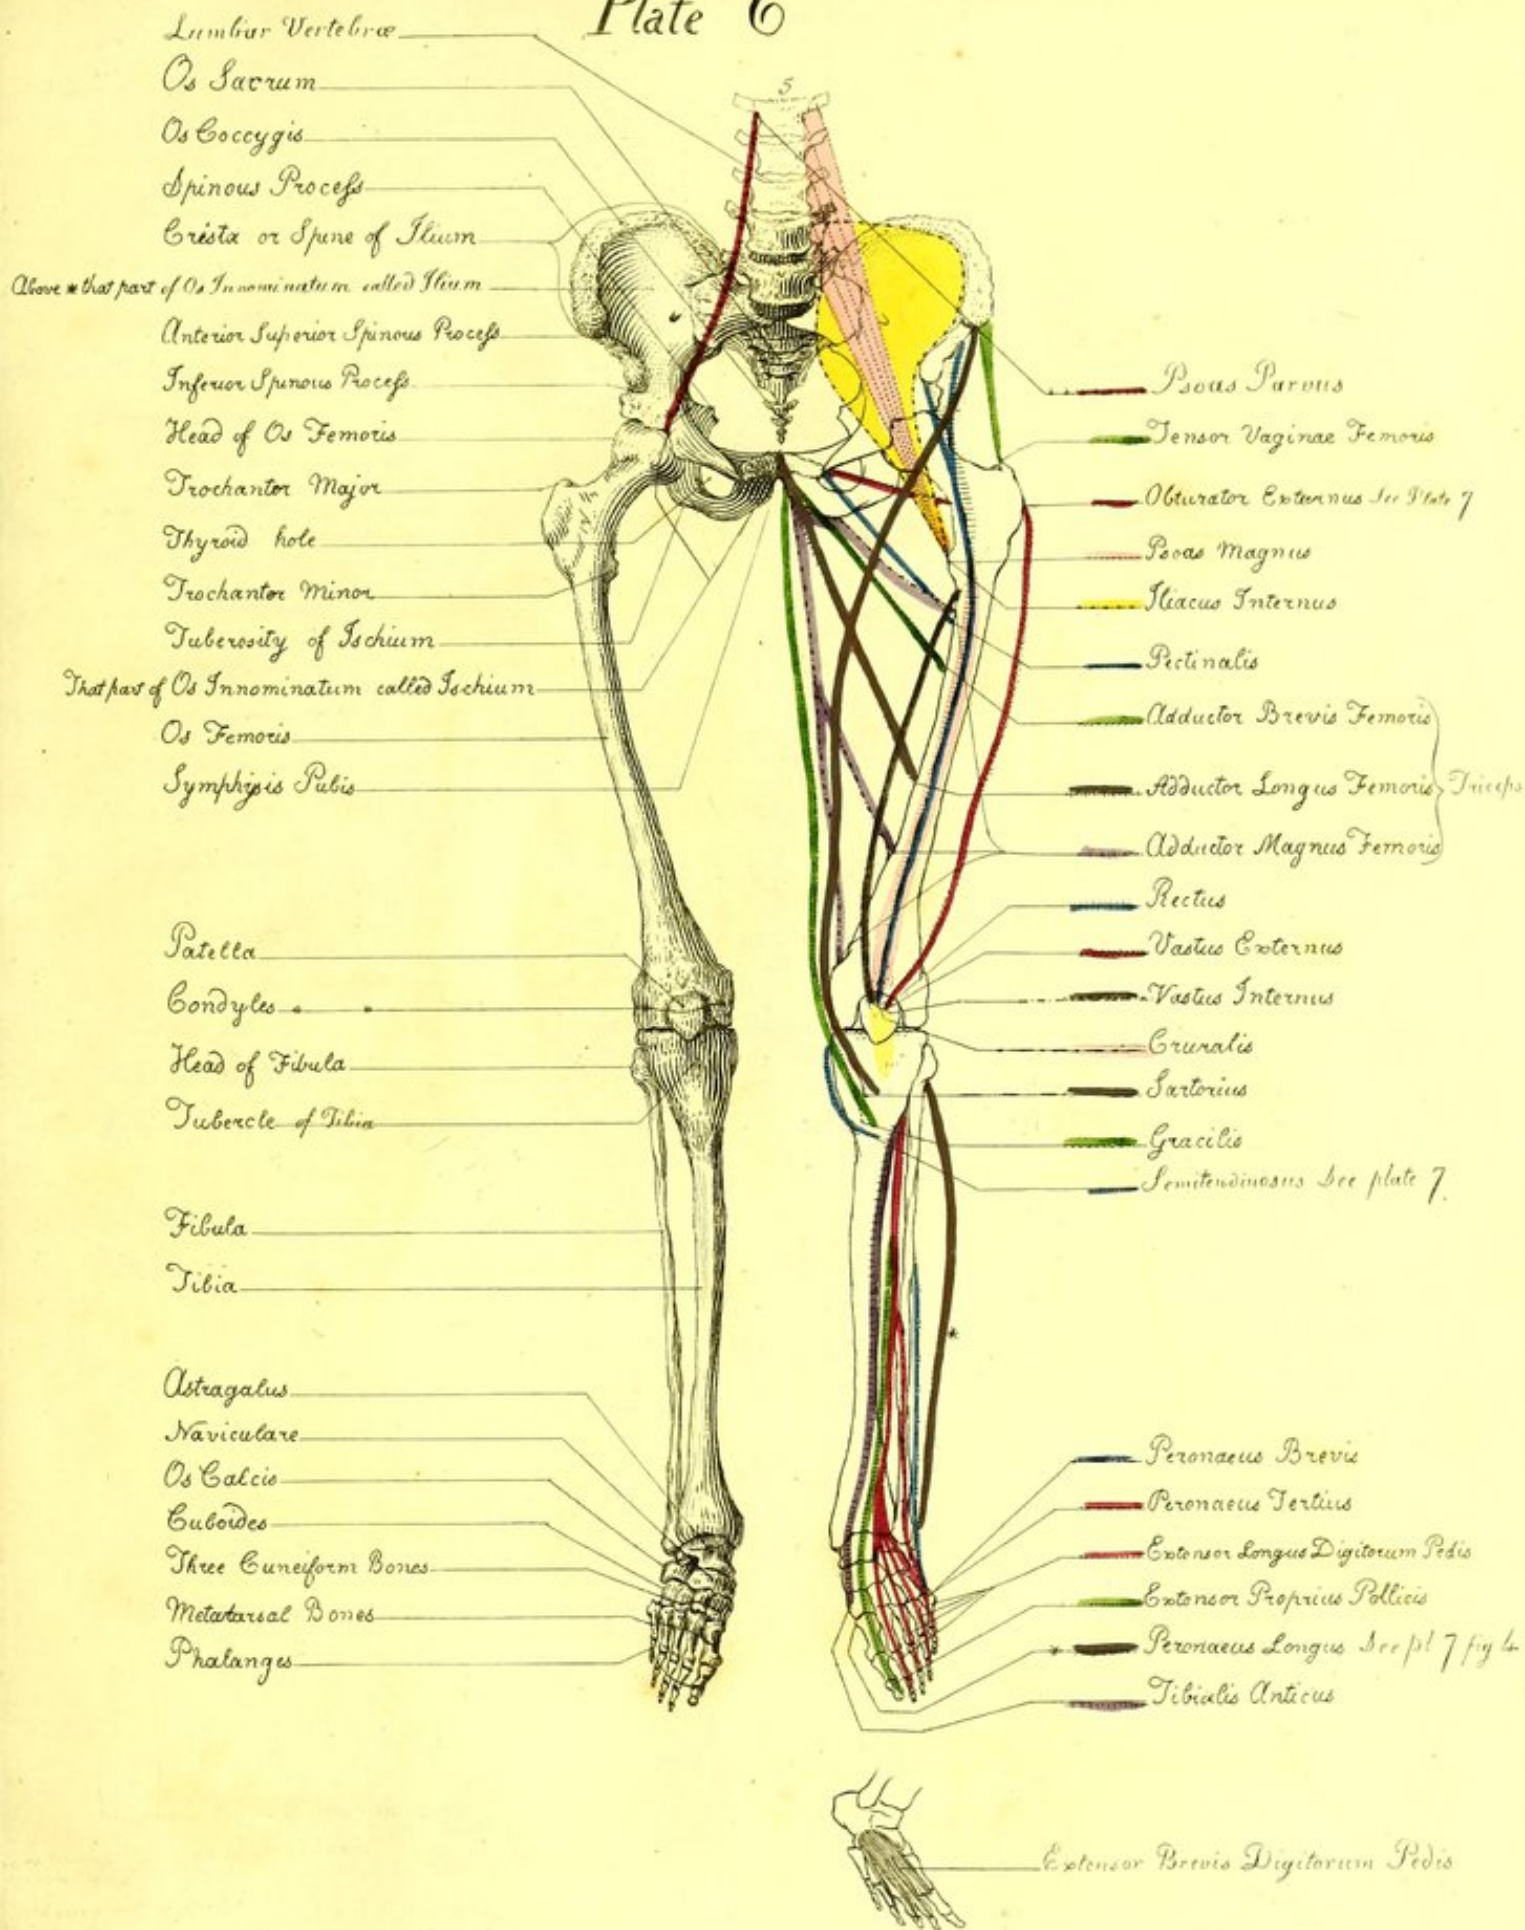 Plate 6
Lumbar Vertebræ
Os Sacrum
Os Coccygis
Spinous Proceſs
Crista or Spine of Ilium
Above * that part of Os Innominatum called Ilium
Anterior Superior Spinous Proceſs
Inferior Spinous Proceſs
Head of Os Femoris
Trochanter Major
Thyroid hole
Trochanter Minor
Tuberosity of Ischium
That part of Os Innominatum called Ischium
Os Femoris
Symphysis Pubis
Patella
Condyles
Head of Fibula
Tubercle of Tibia
Fibula
Tibia
Astragalus
Naviculare
Os Calcis
Cuboides
Three Cuneiform Bones
Metatarsal Bones
Phalanges
5
Psoas Parvus
Tensor Vaginae Femoris
Obturator Externus See Plate 7
Psoas Magnus
Iliacus Internus
Pectinalis
Adductor Brevis Femoris
Adductor Longus Femoris
Triceps
Adductor Magnus Femoris
Rectus
Vastus Externus
Vastus Internus
Cruralis
Sartorius
Gracilis
Semitendinosus See plate 7.
*
Peronaeus Brevis
Peronaeus Tertius
Extensor Longus Digitorum Pedis
Extensor Proprius Pollicis
* Peronaeus Longus See pl 7 fig 4
Tibialis Anticus
Extensor Brevis Digitorum Pedis